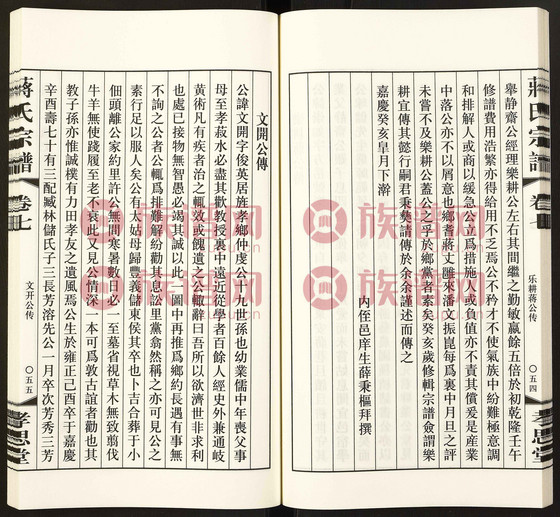 蔣氏宗譜
卷七
乐耕蒋公传
〇五四
孝思堂
舉靜齋公經理樂耕公左右其間繼之勤敏贏餘五倍於初乾隆壬午
修譜費用浩繁亦得給用不乏焉公不矜才不使氣族中紛難極意調
和排解人或商以緩急公立爲措施人或負值亦不責其償爰是産業
中落公亦不以屑意也鄉耆蔣丈雝來潘文振崑每爲裏中月旦之評
未嘗不及樂耕公蓋公之乎於鄉黨者素矣癸亥歲修輯宗譜僉謂樂
耕宜傳其懿行嗣君秉彜請傳於余余謹述而傳之
嘉慶癸亥臯月下澣
内侄邑庠生薛秉樞拜撰
文開公傳
公諱文開字俊英居旌孝鄉仲虔公十九世孫也幼業儒中年喪父事
母至孝菽水必盡其歡教授裏中遠近從學者百餘人經史外兼通岐
黃術凡有疾者治之輒效或餽遺之公輒辭曰吾所以欲濟世非求利
也處已接物無智愚必竭其誠以此一圖中再推爲鄉約長遇有事無
不詢之公者公輒爲排難解紛勸其息訟里黨翕然稱之亦可見公之
素行足以服人矣公有太姑母歸豐義儲東侯其卒也卜吉合葬于小
佃頭離公家約里許公無間寒暑數日必一至墓省視草木無致翦伐
牛羊無使踐履至老不衰此又見公情深一本可爲敦古誼者勸也其
教子孫亦惟誠樸有力田孝友之遺風焉公生於雍正己酉卒于嘉慶
辛酉壽七十有三配臧林儲氏子三長芳溶先公一月卒次芳秀三芳
蔣氏宗譜
卷七
文开公传
〇五五
孝思堂
族譜网